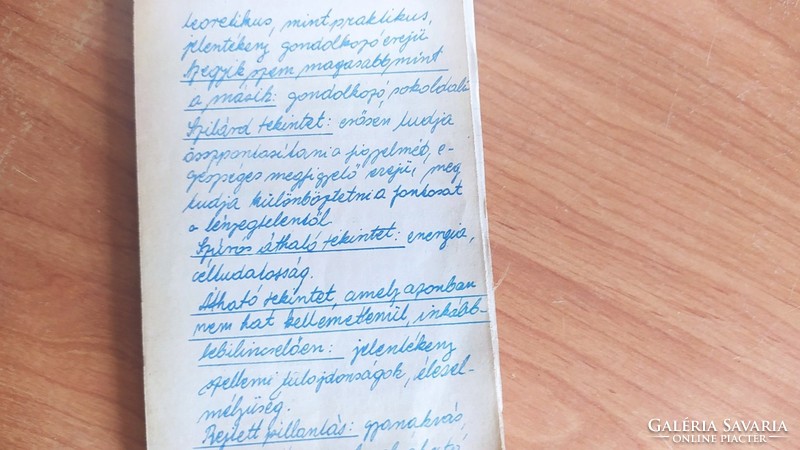 teoretikus, mint praktikus,
jelentékeny gondolkozó erejű
Az egyik szem magasabb mint
a másik: gondolkozó, sokoldalú
Szilárd tekintet: erősen tudja
összpontosítani a figyelmét, e-
gészséges megfigyelő erejű, meg
tudja különböztetni a fontosat
a lényegtelentől.
Szúrós átható tekintet: energia,
céltudatosság.
Átható tekintet, amely azonban
nem hat kellemetlenül, inkább
lebilincselően: jelentékeny
szellemi tulajdonságok, élesel-
méjűség.
Rejtett pillantás: gyanakvás,
GALÉRIA SAVARIA
ONLINE PIACTÉR